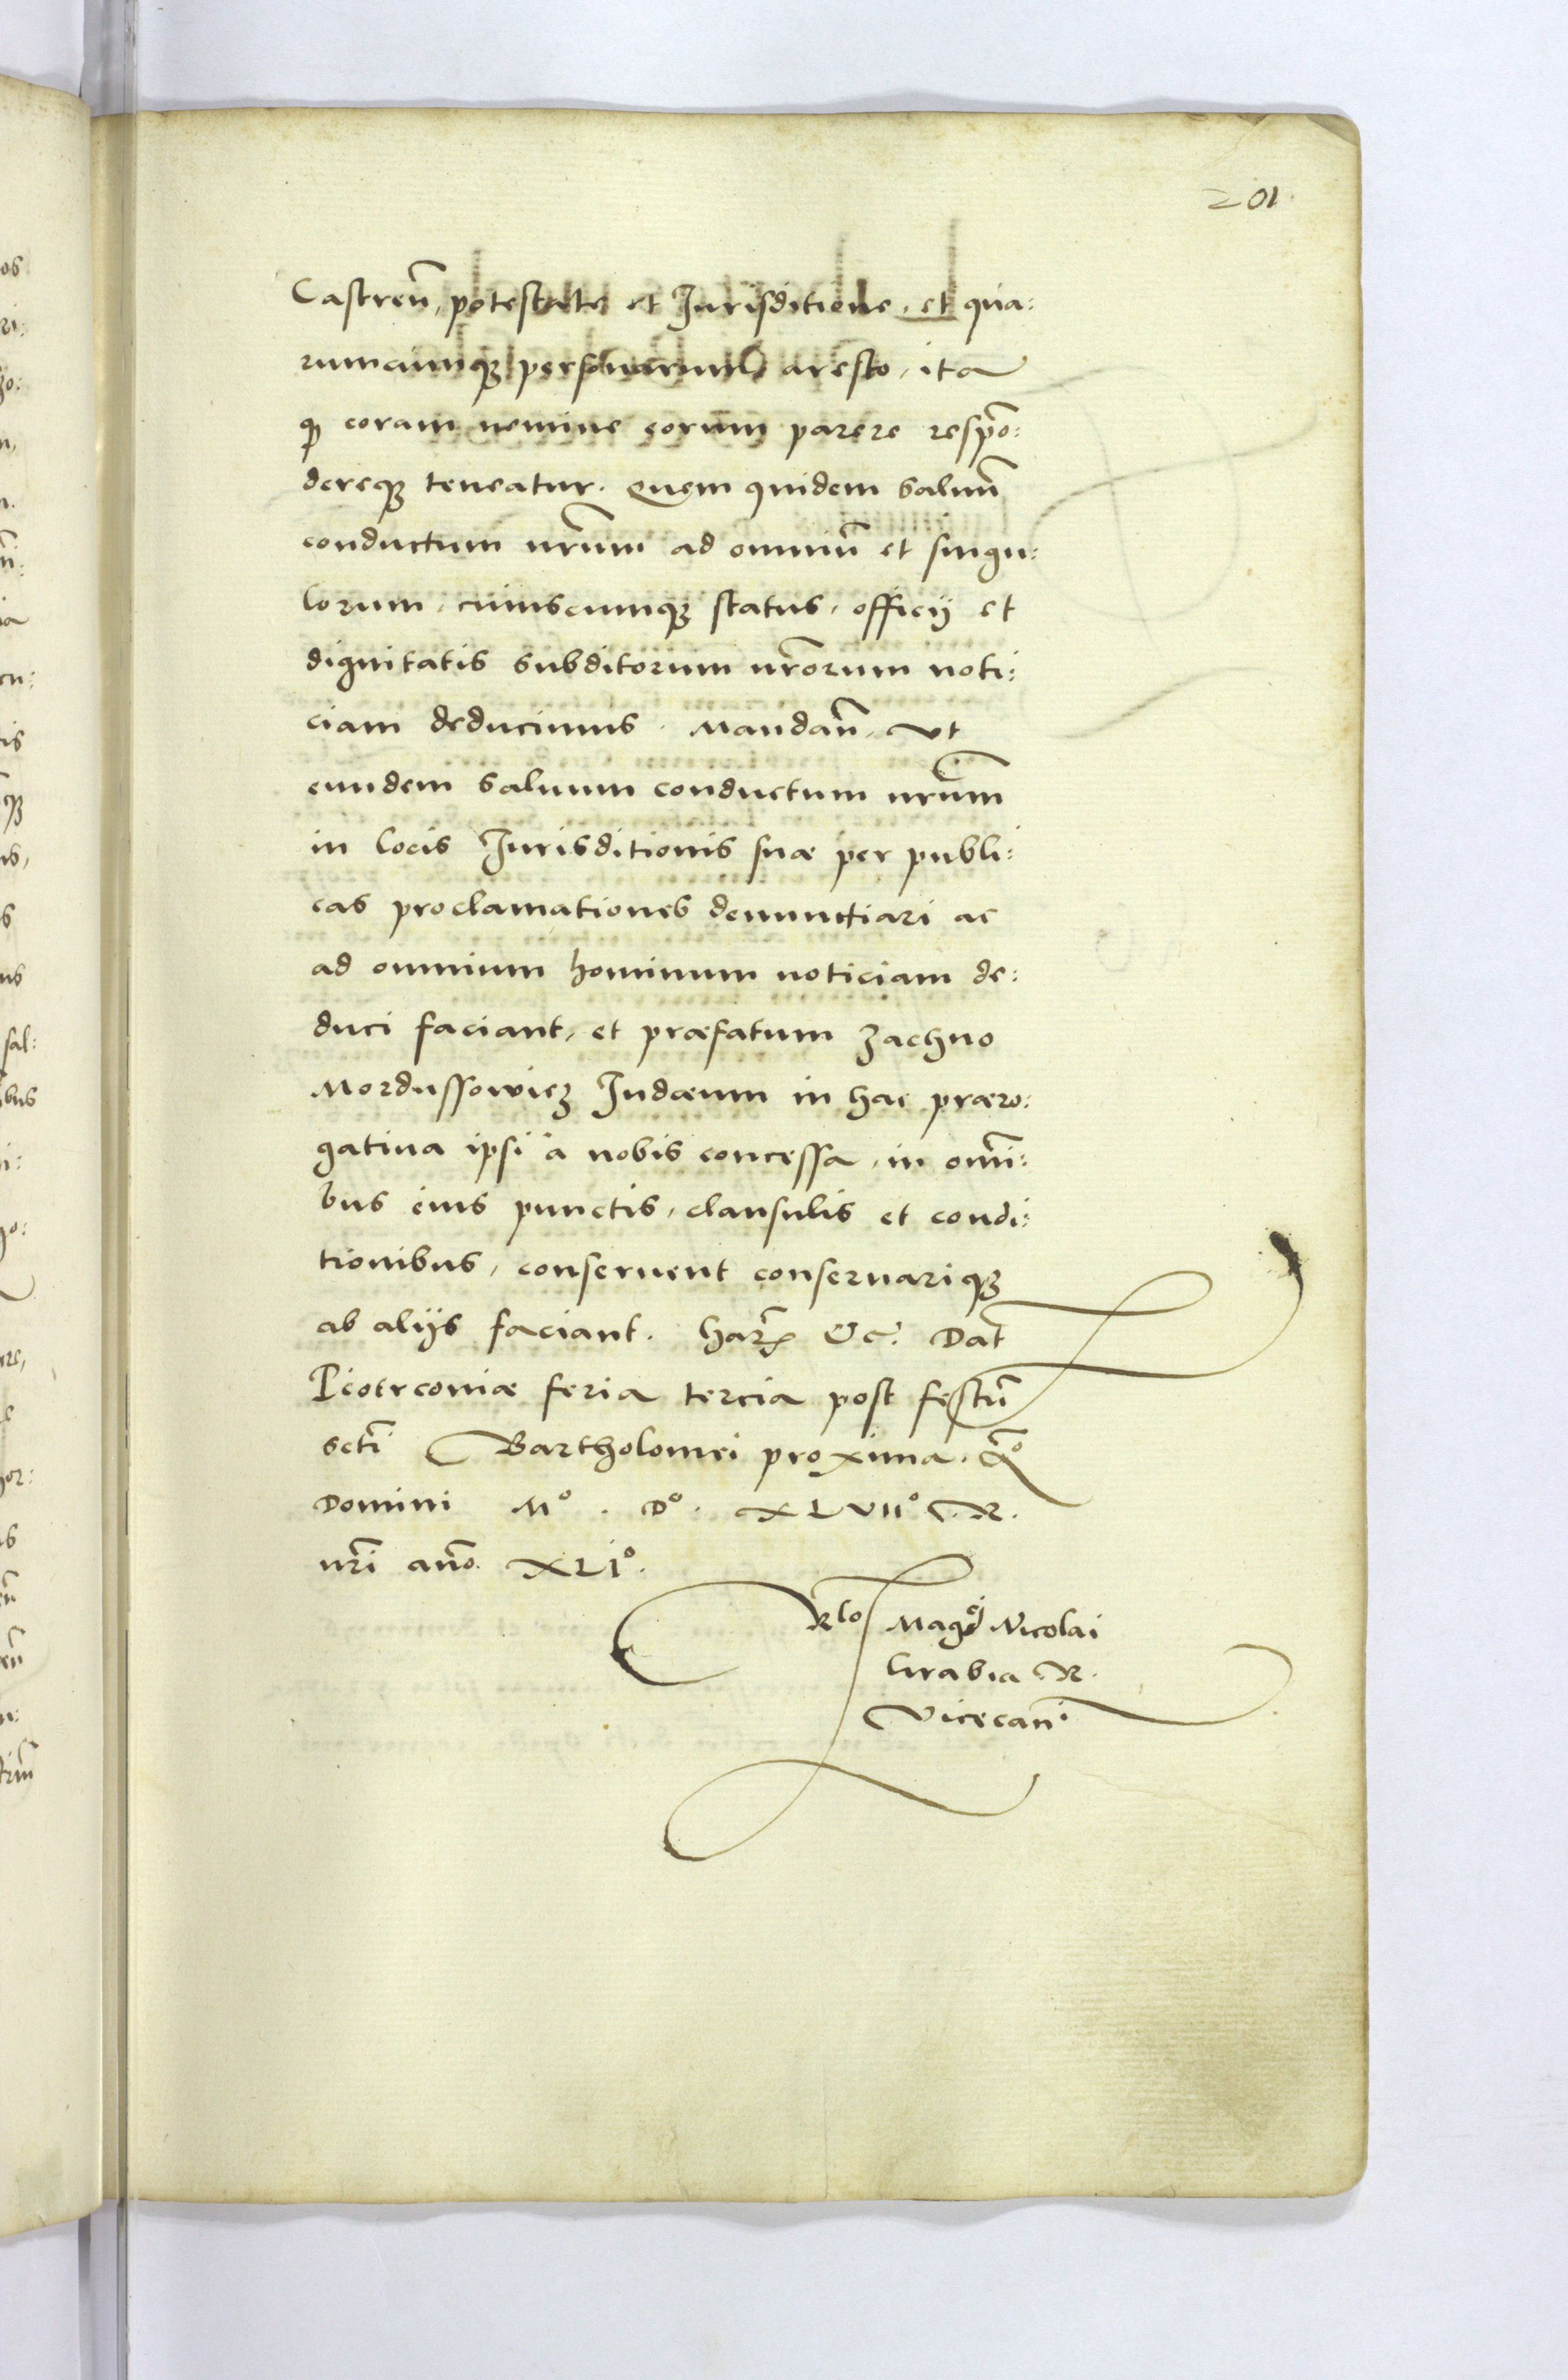 201
Castren̄, potestate et Jurisditione, et qua:
rumcumqꝫ personarum aresto, ita
ꝙ coram nemine eorum parere respō:
dereqꝫ teneatur. Quem quidem saluū
conductum nr̄um ad omniū et singu:
lorum, cuiuscumqꝫ status, officij et
dignitatis subditorum nr̄orum noti:
ciam deducimus. Mandan̄, vt
eundem saluum conductum nr̄um
in locis Jurisditionis suæ per publi:
cas proclamationes denunctiari ac
ad omnium hominum noticiam de:
duci faciant, et præfatum Zachno
Mordussowicz Judæum in hac præro:
gatiua ipsi a nobis concessa, in omī:
bus eius punctis, clausulis et condi:
tionibus, conseruent conseruariqꝫ
ab alijs faciant. Harꝝ &c. Dat̄
Piotrconiæ feria tercia post festū
sctī Bartholomei proxima. Aº
Domini Mº. Dº. XLVIIº. R.
nr̄i año. XLIº.
Rlo Magci Nicolai
Grabia R.
Vicecan̄